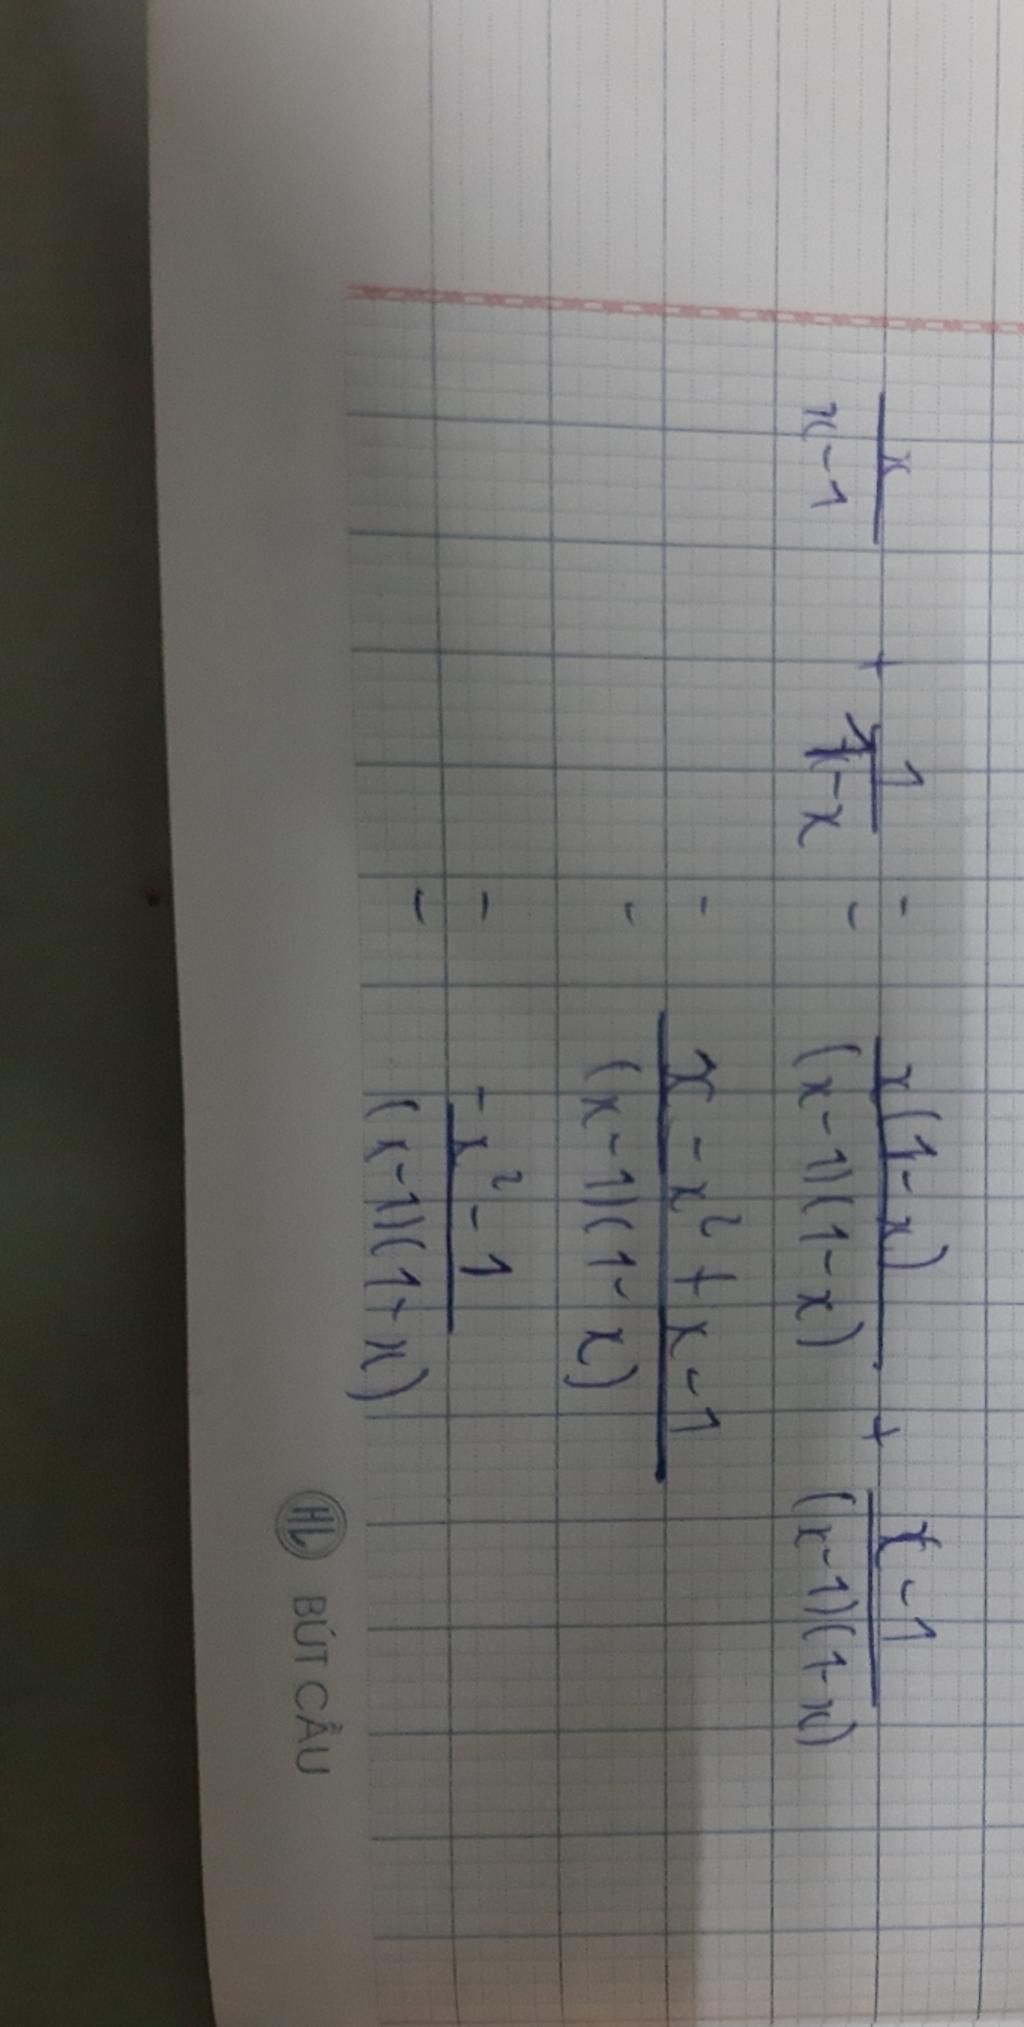 x/(x-1) + 1/(1-x) = x(1-x)/((x-1)(1-x)) + (x-1)/((x-1)(1-x))
= (x-x²+x-1)/((x-1)(1-x))
= (-x²-1)/((x-1)(1+x))
HL BÚT CẦU